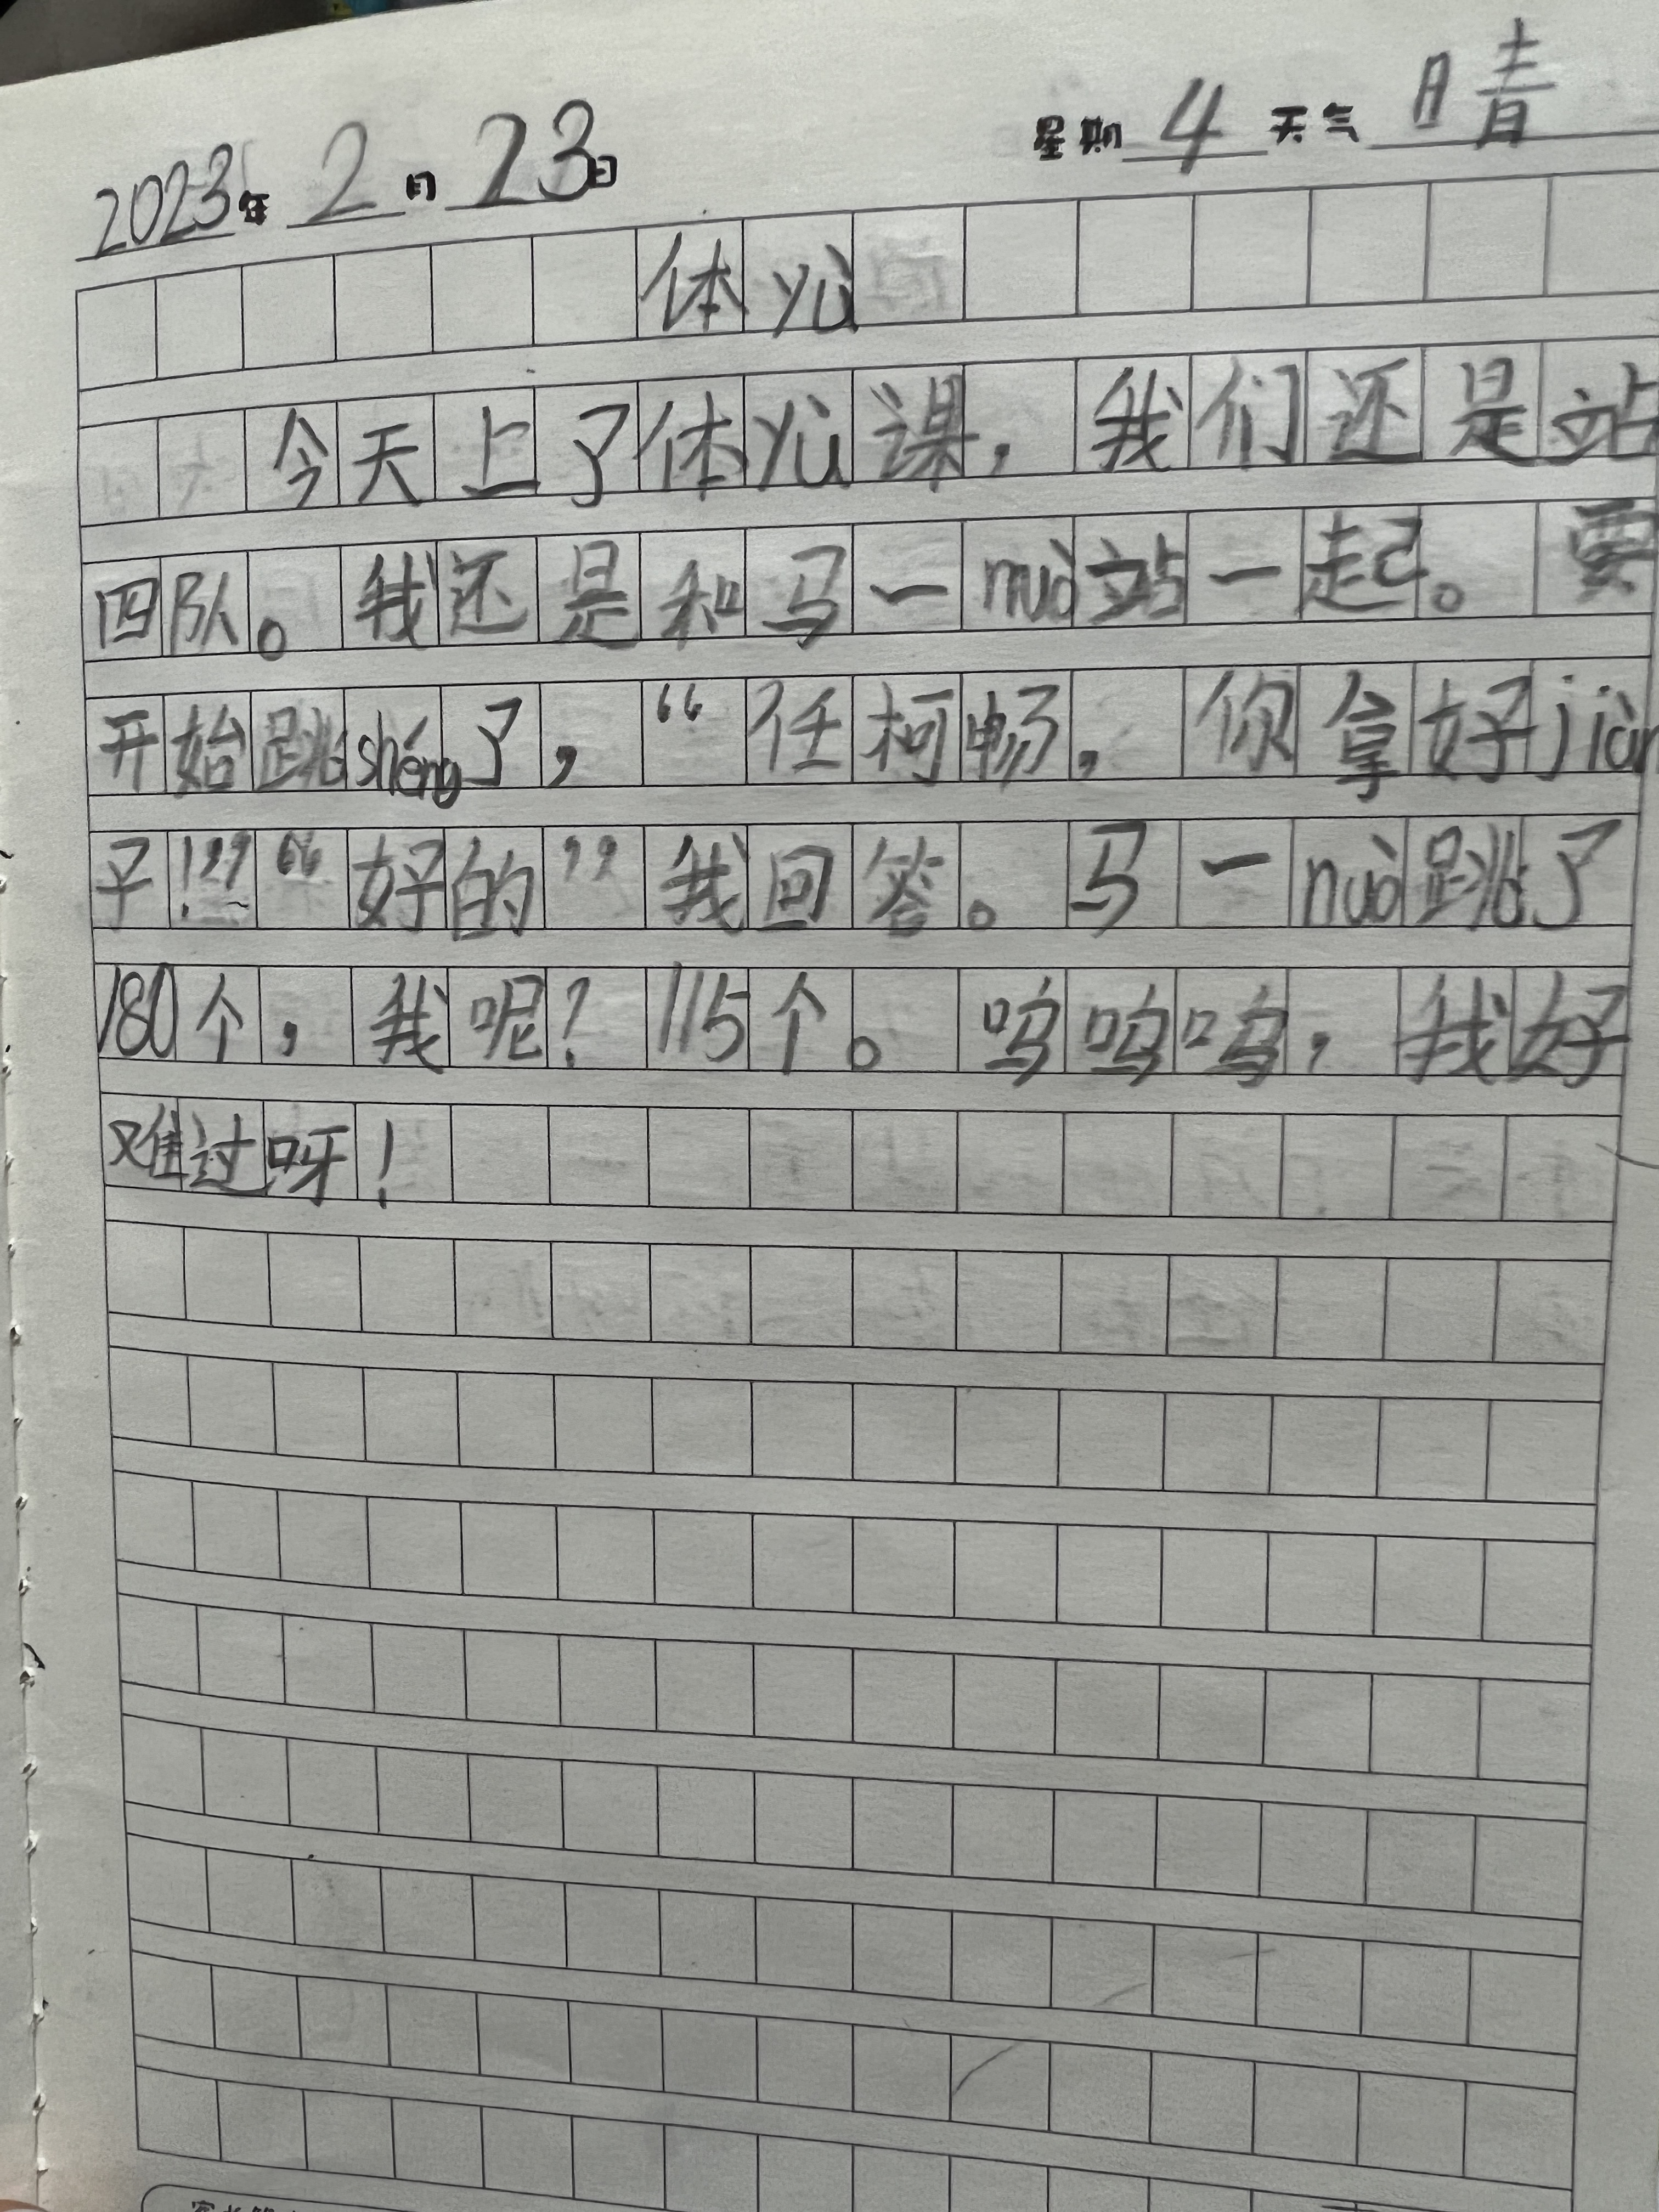 2023年 2 月 23日 星期 4 天气 晴
体yù
今天上了体yù课，我们还是站
四队。我还是和马一nuò站一起。要
开始跳shéng了，“任柯畅，你拿好jiàn
子！”“好的”我回答。马一nuò跳了
180个，我呢？115个。呜呜呜，我好
难过呀！